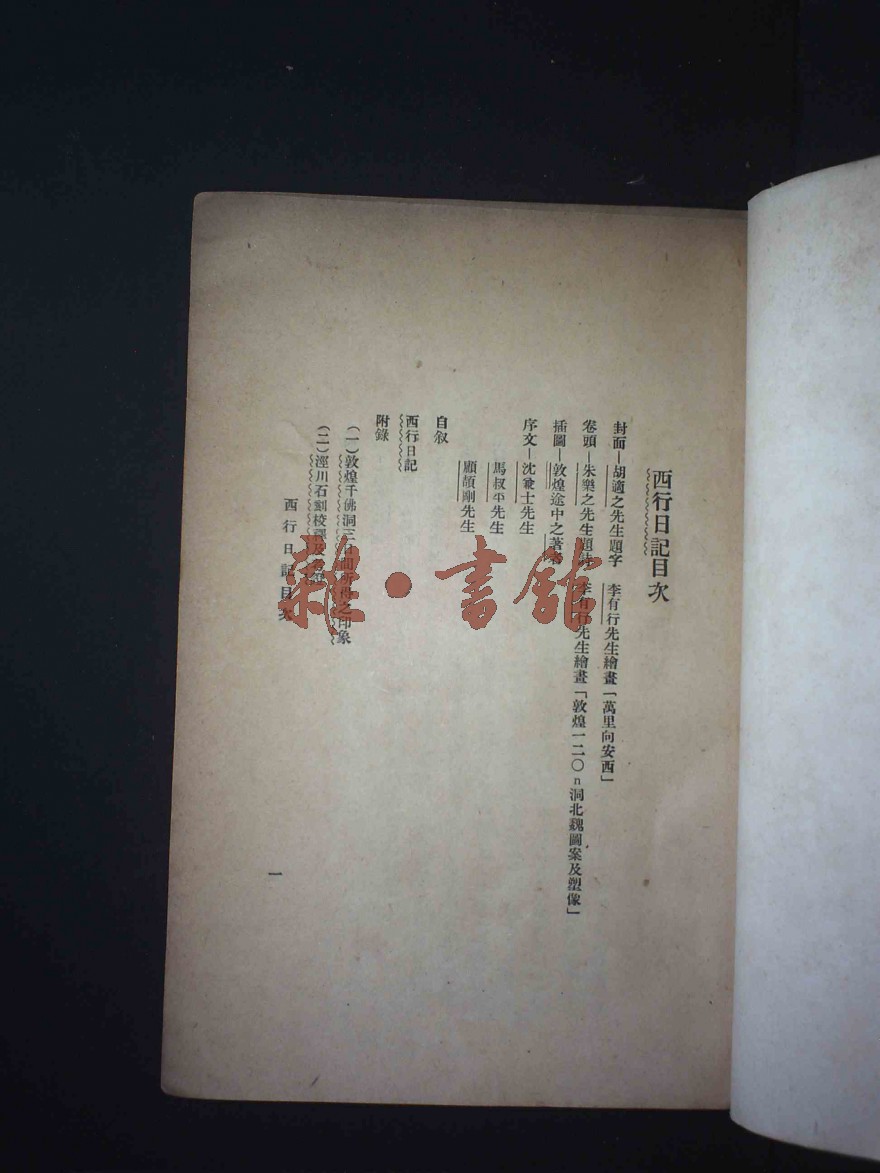 西行日記目次
封面—胡適之先生題字　李有行先生繪畫「萬里向安西」
卷頭—朱樂之先生題詩　李有行先生繪畫「敦煌一二〇n洞北魏圖案及塑像」
插圖—敦煌途中之著者
序文—沈兼士先生
馬叔平先生
顧頡剛先生
自叙
西行日記
附錄
(一)敦煌千佛洞三日間所得之印象
(二)涇川石刻校釋及
西行日記目次
一
雜·書館